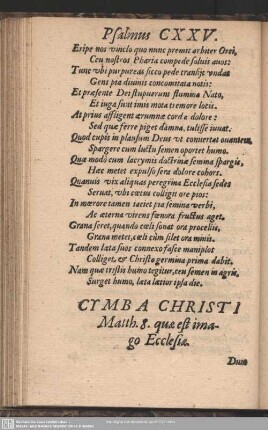 Psalmus CXXV.
Eripe nos vinclo quo nunc premit arbiter Orci,
Ceu nostros Pharia compede soluis auos:
Tunc vbi purpureas sicco pede transijt vndas
Gens pia diuinis concomitata notis:
Et præsente Dei stupuerunt flumina Nato,
Et iuga sunt imis mota tremore locis.
At prius affligent ærumnæ corda dolore:
Sed quæ ferre piget damna, tulisse iuuat.
Quod cupis in plausum Deus vt conuertat ouantem
Spargere cum luctu semen oportet humo.
Quæ modò cum lacrymis doctrinæ semina spargis,
Hæc metet expulso sera dolore cohors.
Quamuis vix aliquas peregrina Ecclesia sedes
Seruat, vbi cœtus colligit ore pios:
In mœrore tamen iaciet pia semina verbi,
Ac æterna virens fœnora fructus aget.
Grana seret, quando cœli sonat ora procellis,
Grana metet, cœli cùm silet ora minis.
Tandem læta suos connexo fasce maniplos
Colliget, & Christo germina prima dabit.
Nam quæ tristis humo tegitur, ceu semen in agris,
Surget humo, læta lætior ipsa die.
CYMBA CHRISTI
Matth. 8. quæ est ima-
go Ecclesiæ.
Dum